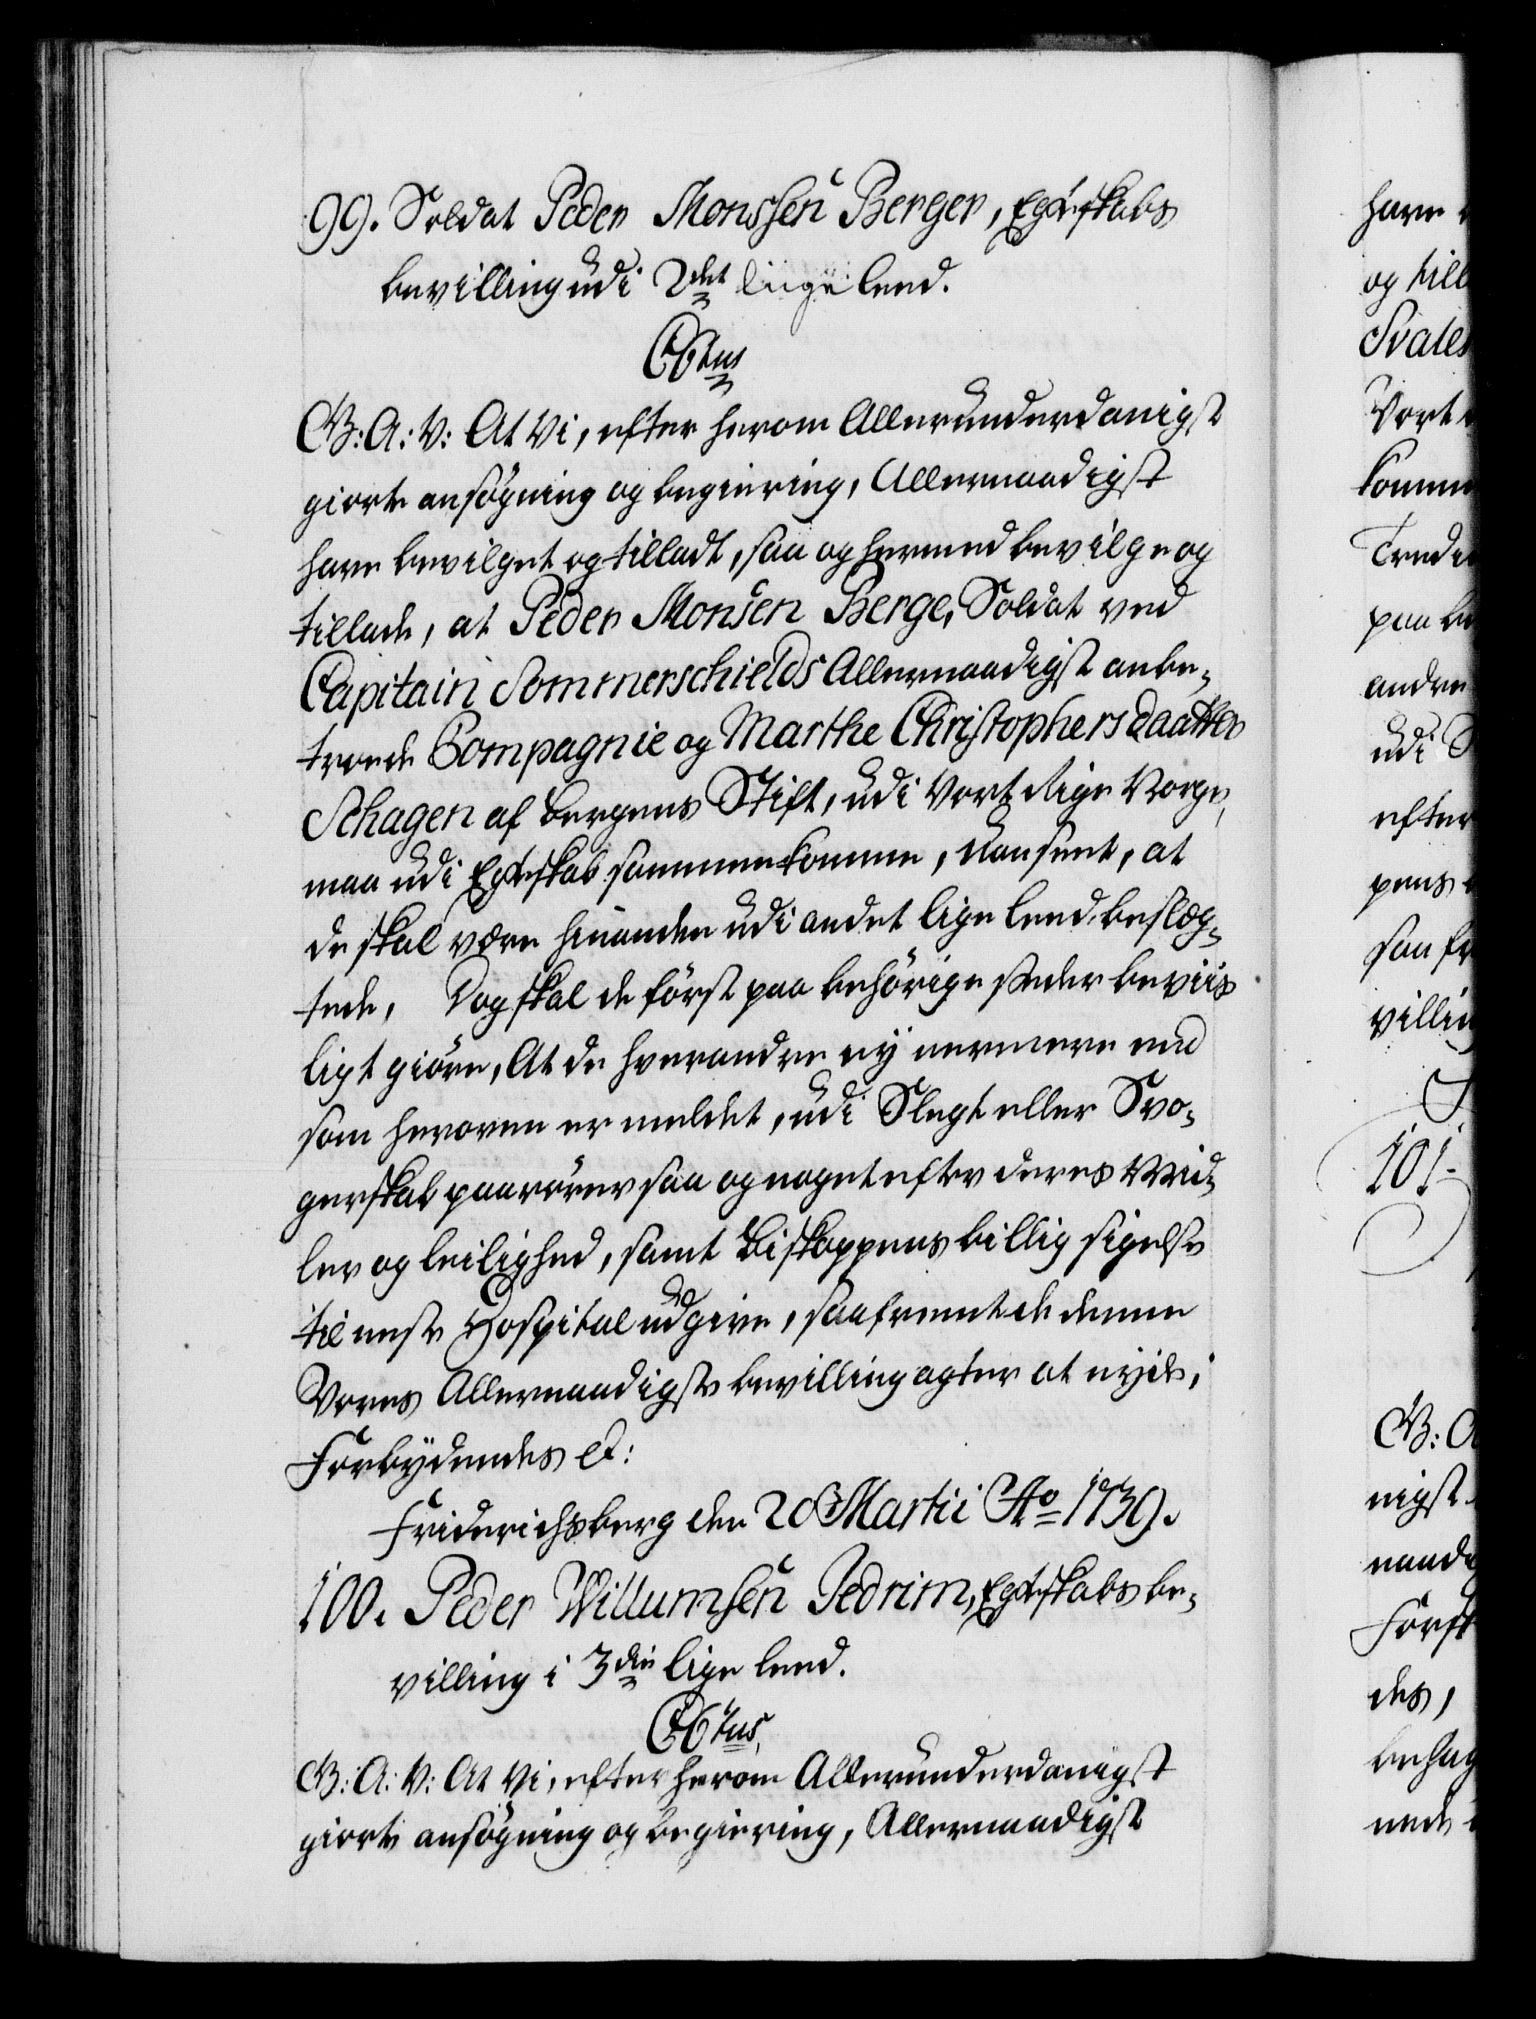 99. Soldat Peder Monssen Berger, Egteskabs
bevilling udi 2det liige leed.
C6tus
G: A: V: At Vi, efter herom Allerunderdanigst
giorte ansøgning og begiering, Allernaadigst
have bevilget og tilladt, saa og hermed bevilge og
tillade, at Peder Monsen Berge, Soldat ved
Capitain Sommerschields Allernaadigst anbe-
troede Compagnie og Marthe Christophersdaatter
Schagen af Bergens Stift, udi Vort Rige Norge,
maa udi Egteskab sammenkomme, uanseet, at
de skal være hinanden udi andet lige leed beslæg-
tede, Dog skal de först paa behörige steder beviis
ligt giöre, At de hverandre ey nermere end
som heroven er meldet, udi Slegt eller Svo-
gerskab paarörer saa og noget efter deres Mid-
ler og leilighed, samt Biskoppens billig sigelse
til neste Hospital udgive, saafremt de denne
Vores Allernaadigste bevilling agter at nyde,
Forbydendes &:
Friderichsberg den 20 Martii Ao 1739.
100. Peder Willumsen Pedrim, Egteskabs be-
villing i 3die lige leed.
C6tus
G: A: V: At Vi, efter herom Allerunderdanigst
giorte ansøgning og begiering, Allernaadigst
have
og till
Svale
Vort
komme
Tredie
paa be
andre
udi S
efter
pens
saa fr
villin
101.
G: A
nigst
naad
Först
des,
behag